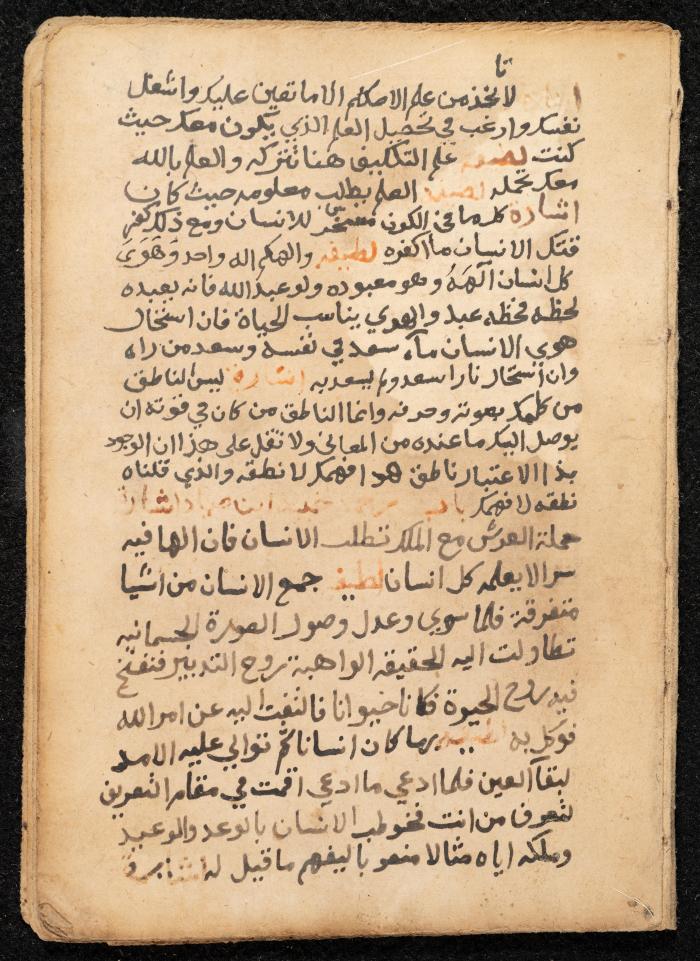 تا
لا تخذ من علم الاحكام الا ما تعين عليك واشغل
نفسك وارغب في تحصيل العلم الذي يكون معك حيث
كنت لطيفه علم التكليف هنا تتركه والعلم بالله
معك تحمله لطيفه العلم يطلب معلومه حيث كان
اشارة كل ما في الكون مسخر للانسان ومع ذلك كفر
قتل الانسان ما اكفره لطيفه والهكم اله واحد وهوى
كل انسان الهه وهو معبوده ولو عبد الله فانه يعبده
لحظه فحظه عبد والهوي يناسب الحياة فان استحال
هوي الانسان ماء سعد في نفسه وسعد من راه
وان استحال نارا سعد ولم يسعد به اشارة ليس الناطق
من كلمك بصوته وحرفه وانما الناطق من كان في قوته ان
يوصل اليك ما عنده من المعاني ولا تقل على هذا ان الوجود
بذا الاعتبار ناطق هو افهمك لا نطقه والذي قلناه
نطقه لا فهمك باب اشارة
حملة العرش مع الملك تطلب الانسان فان الها فيه
سرا لا يعلمه كل انسان لطيفه جمع الانسان من اشيا
متفرقة فلما سوي وعدل وصور الصورة الجسمانيه
تطاولت اليه الحقيقه الواهبة روح التدبير فنفخ
فيه روح الحيوة فكان حيوانا فالتفت اليه عن امر الله
فوكل به لطيفه بما كان انسانا ثم توالي عليه الامد
لبقا العين فلما ادعي ما ادعي اقمت في مقام التعريف
لتعرف من انت فخوطب الانسان بالوعد والوعيد
وملكه اياه مثالا منصوبا ليفهم ما قيل له اشارة